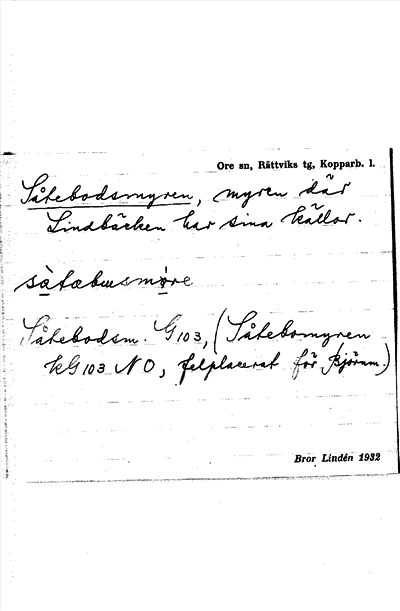 Ore sn, Rättviks tg, Kopparb. l.
Såtebodsmyren, myren där
Lindbäcken har sina källor.
Såtebodsm. G103, (Såtebomyren
kG103 NO, felplacerat för Björnm.)
Bror Lindén 1932